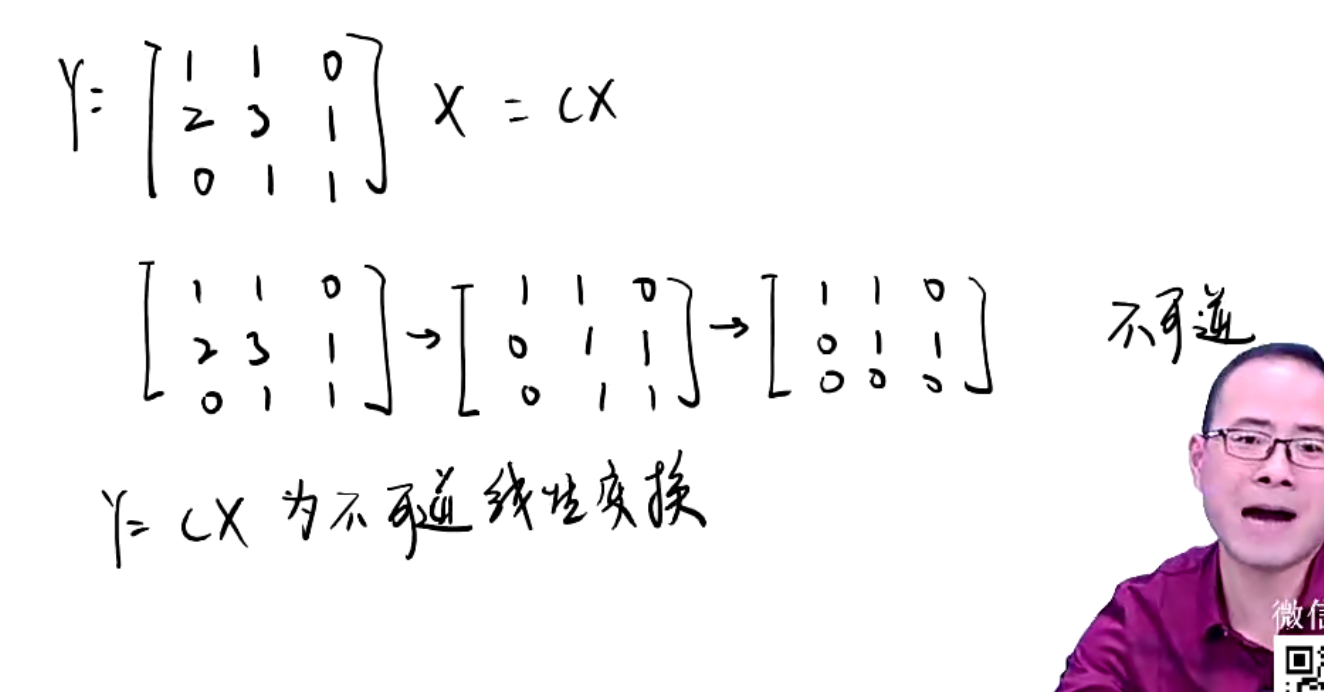 Y = [1 1 0; 2 3 1; 0 1 1] X = CX
[1 1 0; 2 3 1; 0 1 1] → [1 1 0; 0 1 1; 0 1 1] → [1 1 0; 0 1 1; 0 0 0] 不可逆
Y = CX 为不可逆线性变换
微信